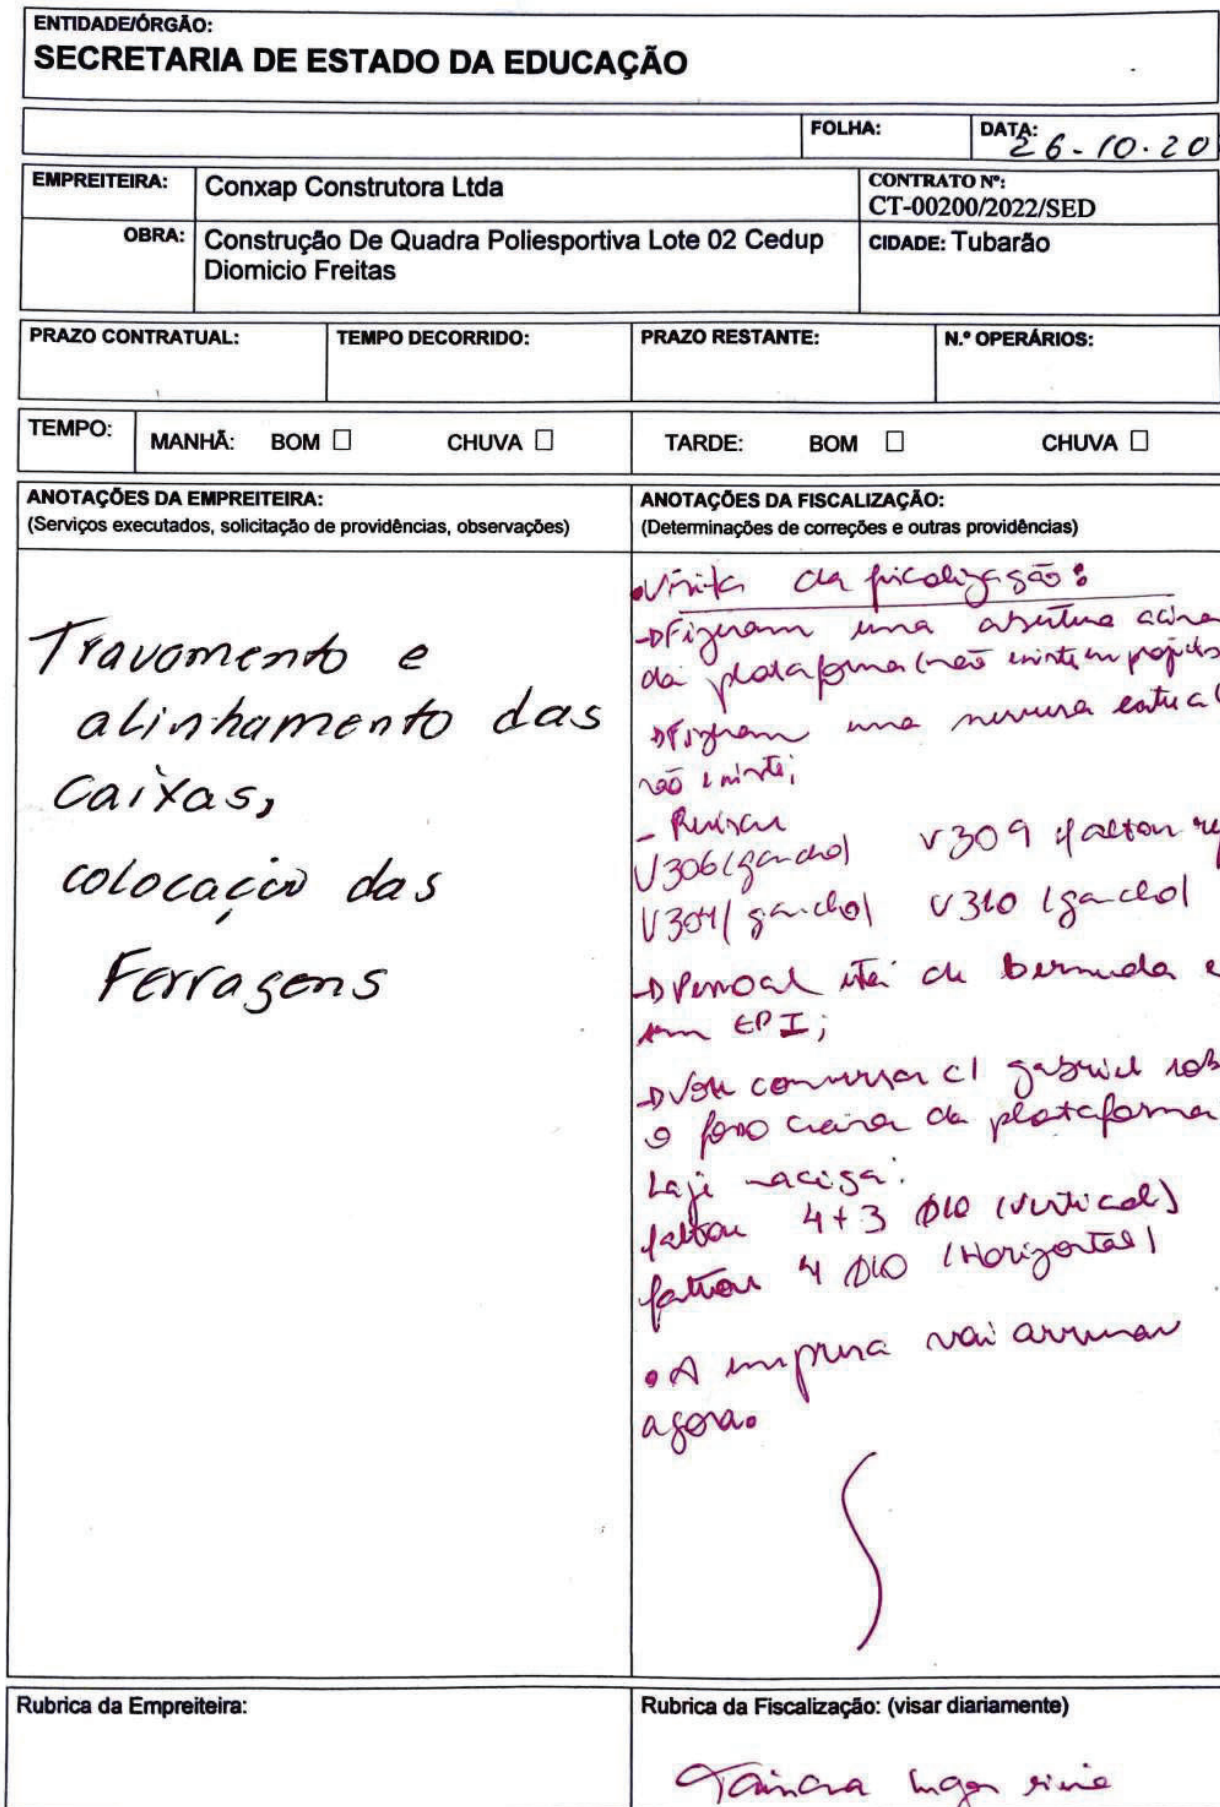 ENTIDADE/ÓRGÃO:
SECRETARIA DE ESTADO DA EDUCAÇÃO
FOLHA:
DATA: 26-10.20
EMPREITEIRA: Conxap Construtora Ltda
CONTRATO Nº:
CT-00200/2022/SED
OBRA: Construção De Quadra Poliesportiva Lote 02 Cedup
Diomicio Freitas
CIDADE: Tubarão
PRAZO CONTRATUAL: TEMPO DECORRIDO: PRAZO RESTANTE: N.º OPERÁRIOS:
TEMPO: MANHÃ: BOM ☐ CHUVA ☐ TARDE: BOM ☐ CHUVA ☐
ANOTAÇÕES DA EMPREITEIRA:
(Serviços executados, solicitação de providências, observações)
Travamento e
alinhamento das
Caixas,
colocação das
Ferragens
ANOTAÇÕES DA FISCALIZAÇÃO:
(Determinações de correções e outras providências)
•Visita da fiscalização:
→Fizeram uma abertura acima
da plataforma (não existe em projeto
→Fizeram uma nervura
não existe;
- Revisar
V306 (gancho) V309 (faltou
V304 (gancho) V310 (gancho)
→Pessoal está de bermuda e
sem EPI;
→Vou conversar c/ gabriel sob
o fosso da plataforma
Laje maciça:
faltou 4+3 Ø10 (vertical)
faltou 4 Ø10 (Horizontal)
• A empresa vai arrumar
agora.
Rubrica da Empreiteira:
Rubrica da Fiscalização: (visar diariamente)